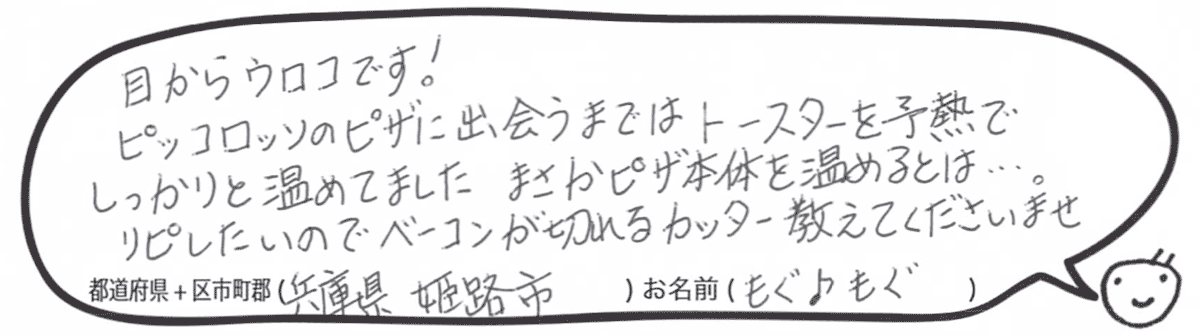 目からウロコです!
ピッコロッソのピザに出会うまではトースターを予熱で
しっかりと温めてました まさかピザ本体を温めるとは…。
リピしたいのでベーコンが切れるカッター教えてくださいませ
都道府県+区市町郡(兵庫県 姫路市)お名前(もぐ♪もぐ)